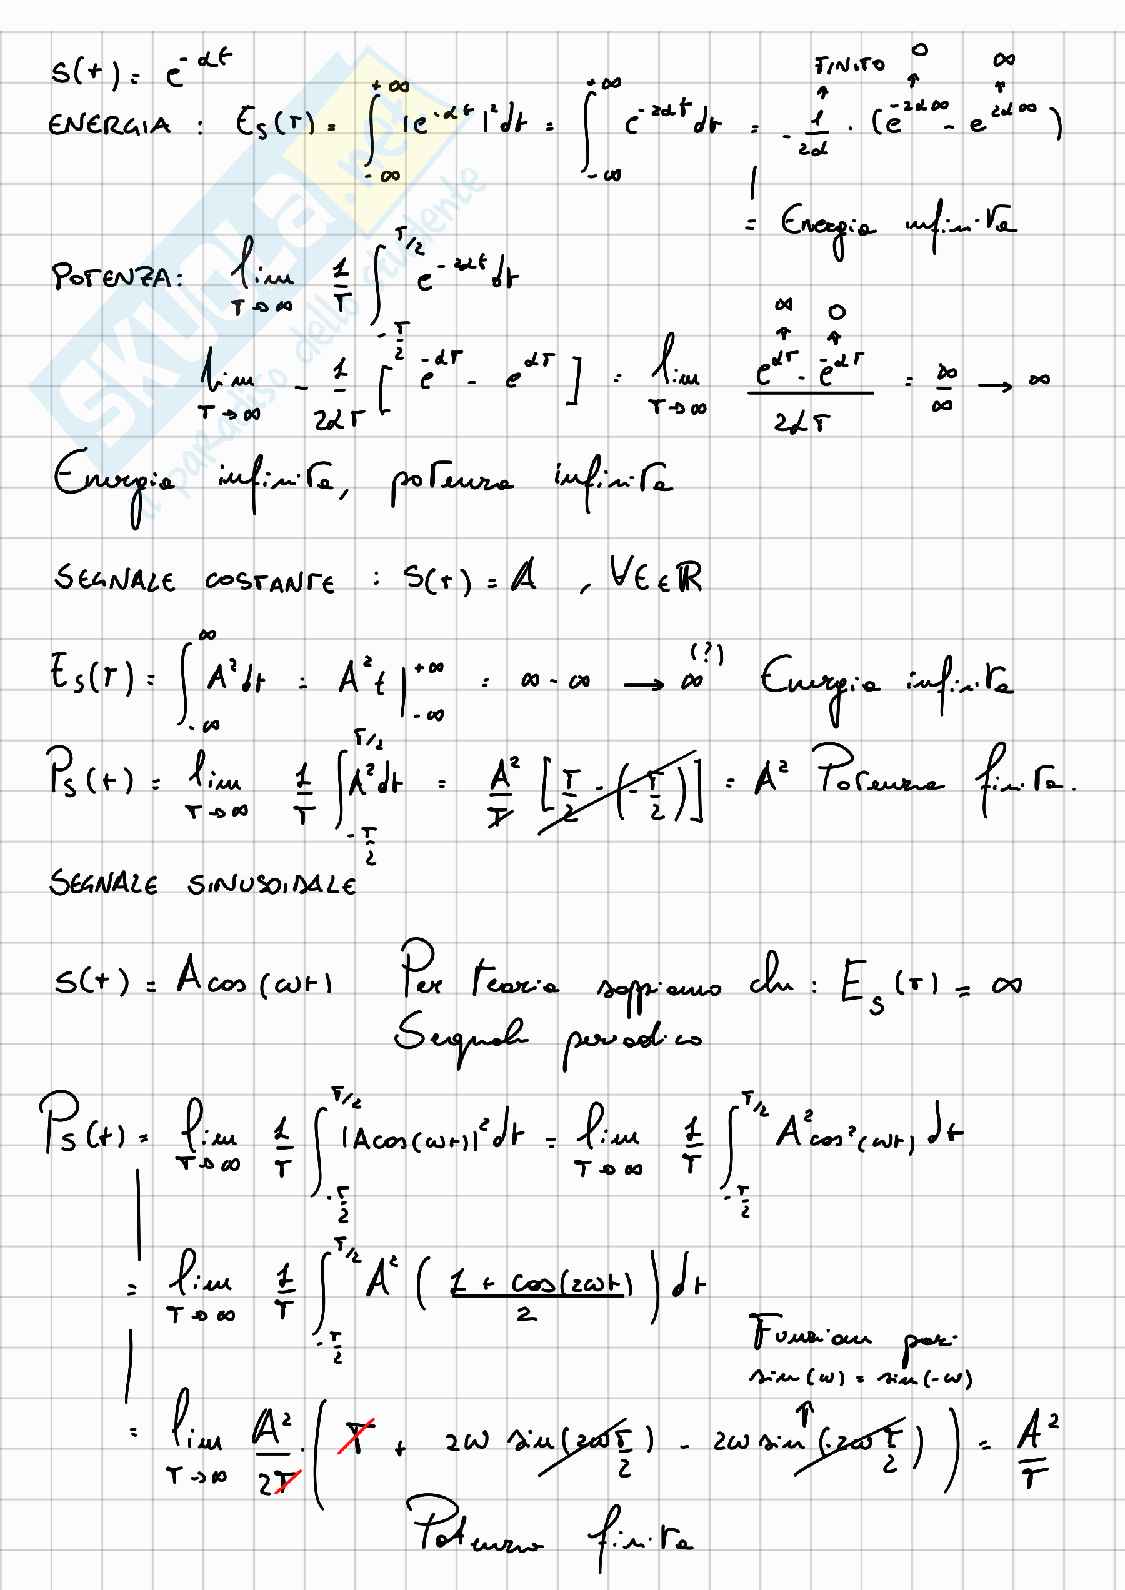 s(t) = e^{-αt}
FINITO 0 ∞
ENERGIA : E_s(T) = ∫_{-∞}^{+∞} |e^{-αt}|² dt = ∫_{-∞}^{+∞} e^{-2αt} dt = -1/2α · (e^{-2α∞} - e^{2α∞})
= Energia infinita
POTENZA: lim_{T→∞} 1/T ∫_{-T/2}^{T/2} e^{-2αt} dt
∞ 0
lim_{T→∞} - 1/2αT [e^{-αT} - e^{αT}] = lim_{T→∞} (e^{αT} - e^{-αT})/2αT = ∞/∞ → ∞
Energia infinita, potenza infinita
SEGNALE COSTANTE : s(t) = A , ∀t ∈ ℝ
E_s(T) = ∫_{-∞}^{∞} A² dt = A² t |_{-∞}^{+∞} = ∞ - ∞ → ∞ (?) Energia infinita
P_s(t) = lim_{T→∞} 1/T ∫_{-T/2}^{T/2} A² dt = A²/T [T/2 - (-T/2)] = A² Potenza finita.
SEGNALE SINUSOIDALE
s(t) = A cos(ωt) Per teoria sappiamo che : E_s(T) = ∞
Segnale periodico
P_s(t) = lim_{T→∞} 1/T ∫_{-T/2}^{T/2} |A cos(ωt)|² dt = lim_{T→∞} 1/T ∫_{-T/2}^{T/2} A² cos²(ωt) dt
= lim_{T→∞} 1/T ∫_{-T/2}^{T/2} A² ((1 + cos(2ωt))/2) dt
Funzioni pari
sin(ω) = sin(-ω)
= lim_{T→∞} A²/2T · (T + 2ω sin(2ω T/2) - 2ω sin(-2ω T/2)) = A²/T
Potenza finita
SKUOLA.net
il paradiso dello studente